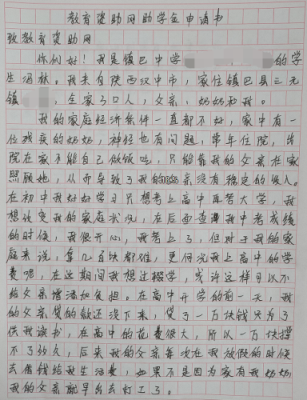 教育资助网助学金申请书
致教育资助网
你们好！我是镇巴中学 的学
生 。我来自陕西汉中市，家住镇巴县三元
镇 ，全家3口人，父亲、奶奶和我。
我的家庭经济条件一直都不好，家中有一
位残疾的奶奶，神经也有问题，常年住院，出
院在家不能自己做饭吃，只能靠我的父亲在家
照顾她，从而导致了我的父亲没有稳定的收入。
在初中我好好学习只想考上高中再考大学，我
想改变我的家庭状况，在后面查 我中考成绩
的时候，我很开心，我考上了，但对于我的家
庭来说，拿几百块都难，更何况我上高中的学
费呢，在这期间我想过辍学，或许这样可以不
给父亲增添加负担。在高中开学的前一天，我
的父亲贷的款还没下来，贷了一万块钱只为了
供我读书，在高中的花费很大，所以一万块撑
不了多久，后来我的父亲每次在我放假的时候
去借钱给我生活费，如果不是因为家有我奶奶
我的父亲就早出去打工了。